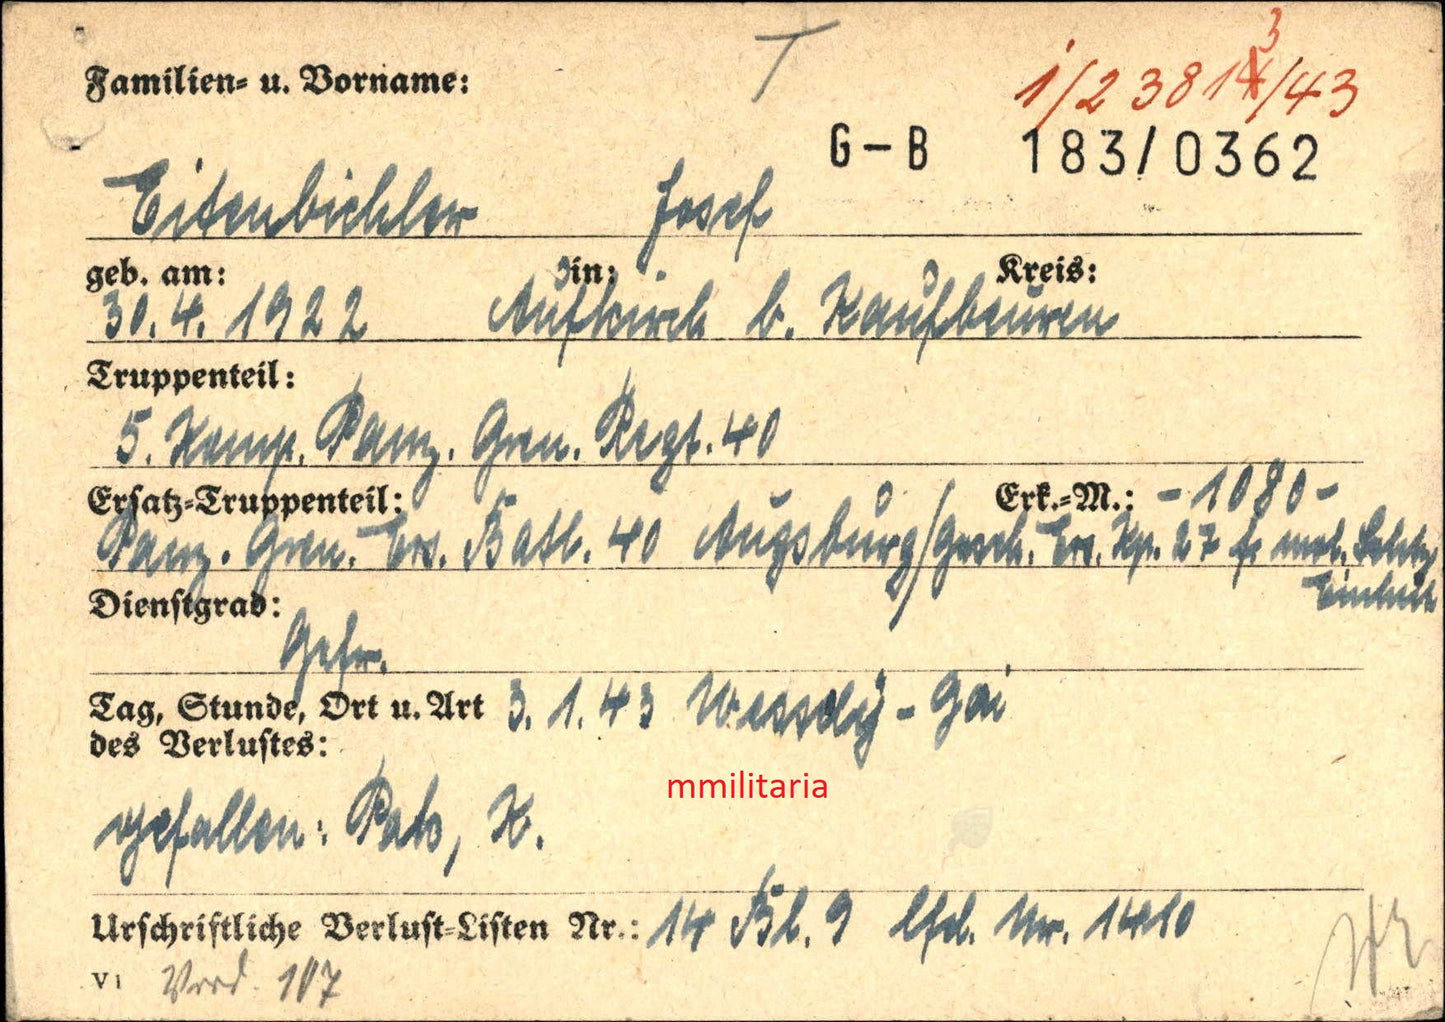 T
1/23814/43
3
Familien- u. Vorname:
G-B 183/0362
Eitenbichler Josef
geb. am: in: Kreis:
30.4.1922 Aufkirch b. Kaufbeuren
Truppenteil:
5. Komp. Panz. Gren. Regt. 40
Ersatz-Truppenteil: Erk.-M.: -1080-
Panz. Gren. Ers. Batl. 40 Augsburg/Gesch. Ers. Kp. 27 f. mot. Schtz
Einheit
Dienstgrad:
Gefr.
Tag, Stunde, Ort u. Art 3.1.43 Wessely-Gai
des Verlustes:
mmilitaria
gefallen: Pak, K.
Urschriftliche Verlust-Listen Nr.: 14 Bl. 9 lfd. Nr. 1410
V1 107